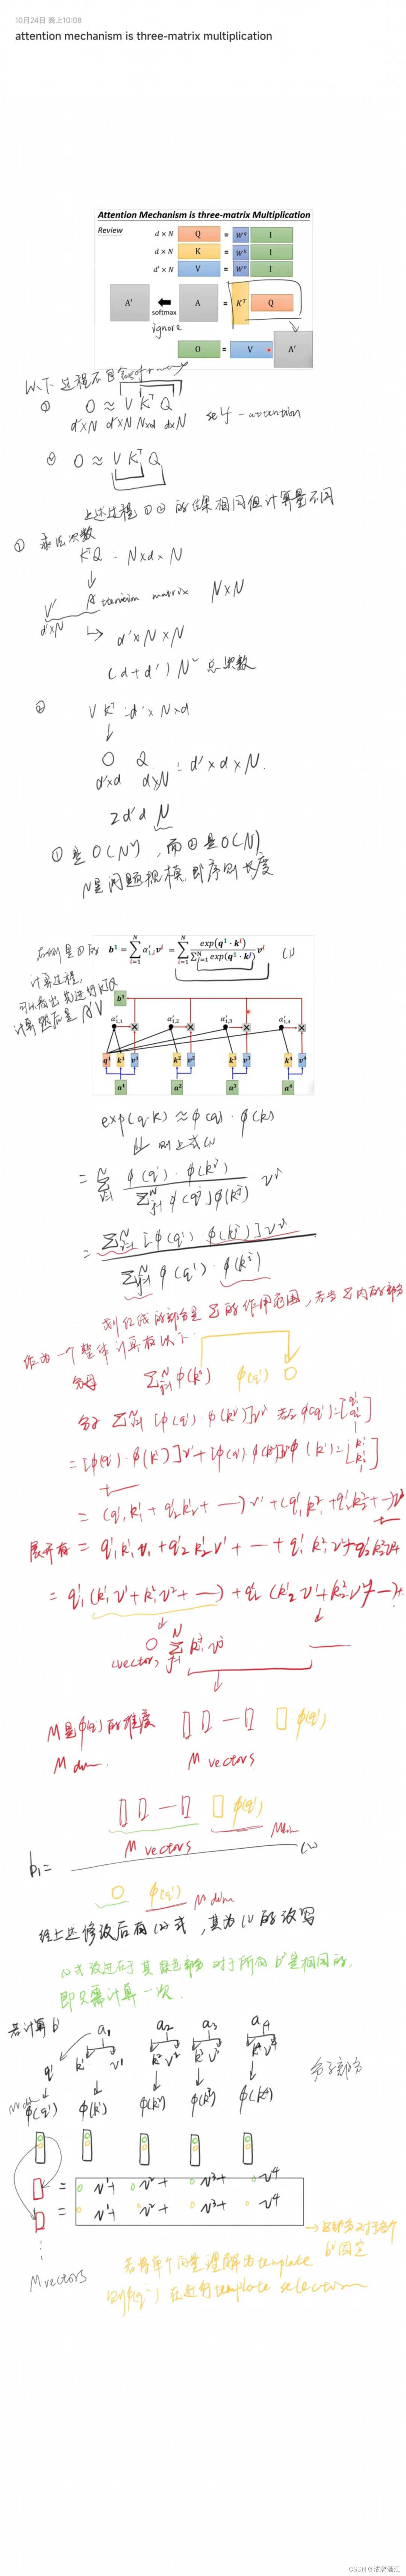 10月24日 晚上10:08
attention mechanism is three-matrix multiplication
Attention Mechanism is three-matrix Multiplication
Review
d × N Q = W^q I
d × N K = W^k I
d' × N V = W^v I
A' softmax A = K^T Q
ignore
O = V A'
以下过程不包含
① O ≈ V K^T Q self-attention
d'×N d'×N N×d d×N
② O ≈ V K^T Q
上述过程 ① ② 的结果相同但计算量不同
① 乘法次数
K^T Q = N×d×N
V Attention matrix N×N
d'×N ↳ d'×N×N
(d+d')N² 总次数
② V K^T = d'×N×d
O Q = d'×d×N.
d'×d d×N
2d'd N
① 是 O(N²), 而 ② 是 O(N)
N是问题规模, 即序列长度
右侧是①的
计算过程,
可以看出先进行KTQ
计算 然后是 A'V
b^1 = \sum_{i=1}^{N} α'_{1,i} v^i = \sum_{i=1}^{N} \frac{exp(q^1 · k^i)}{\sum_{j=1}^{N} exp(q^1 · k^j)} v^i (1)
b^1
α'_{1,1} α'_{1,2} α'_{1,3} α'_{1,4}
q^1 k^1 v^1 k^2 v^2 k^3 v^3 k^4 v^4
a^1 a^2 a^3 a^4
exp(q·k) ≈ φ(q)·φ(k)
⇓ 则上式(1)
= \sum_{i=1}^{N} \frac{φ(q^1)·φ(k^i)}{\sum_{j=1}^{N} φ(q^1)φ(k^j)} v^i
= \frac{\sum_{i=1}^{N} [φ(q^1) φ(k^i)] v^i}{\sum_{j=1}^{N} φ(q^1)·φ(k^j)}
划红线的部分是 Σ 的作用范围, 若当 Σ 内的部分
作为一个整体计算有以下:
分母 \sum_{j=1}^{N} φ(k^j) φ(q^1) O
分子 \sum_{i=1}^{N} [φ(q^1)·φ(k^i)]v^i 若 φ(q^1)=
= [φ(q^1)·φ(k^1)]v^1+[φ(q^1)·φ(k^2)]v^2 φ(k^1)=
+ ...
= (q_1^1 k_1^1 + q_2^1 k_2^1 + ---) v^1 + (q_1^1 k_1^2 + q_2^1 k_2^2 + ---)v^2
展开有 = q_1^1 k_1^1 v^1 + q_2^1 k_2^1 v^1 + --- + q_1^1 k_1^2 v^2 + q_2^1 k_2^2 v^2 +
= q_1^1 (k_1^1 v^1 + k_1^2 v^2 + ---) + q_2^1 (k_2^1 v^1 + k_2^2 v^2 + ---)+
(vector)
M是φ(q^1)的维度 φ(q^1)
M dim. M vectors
φ(q^1)
M vectors M dim
b_1 =
O φ(q^1) M dim
经上述修改后有(2)式, 其为(1)的改写
(2)式改进在于其绿色部分对于所有 b^i 是相同的,
即只需计算一次.
若计算 b^1 a_1 a_2 a_3 a_4
q^1 k^1 v^1 k^2 v^2 k^3 v^3 k^4 v^4
分子部分
M dim φ(q^1) φ(k^1) φ(k^2) φ(k^3) φ(k^4)
= v^1 + v^2 + v^3 + v^4
= v^1 + v^2 + v^3 + v^4
→ 这部分对于每个
b^i 固定
M vectors
若将单个向量理解为template
则φ(q^1) 在进行template selection
CSDN